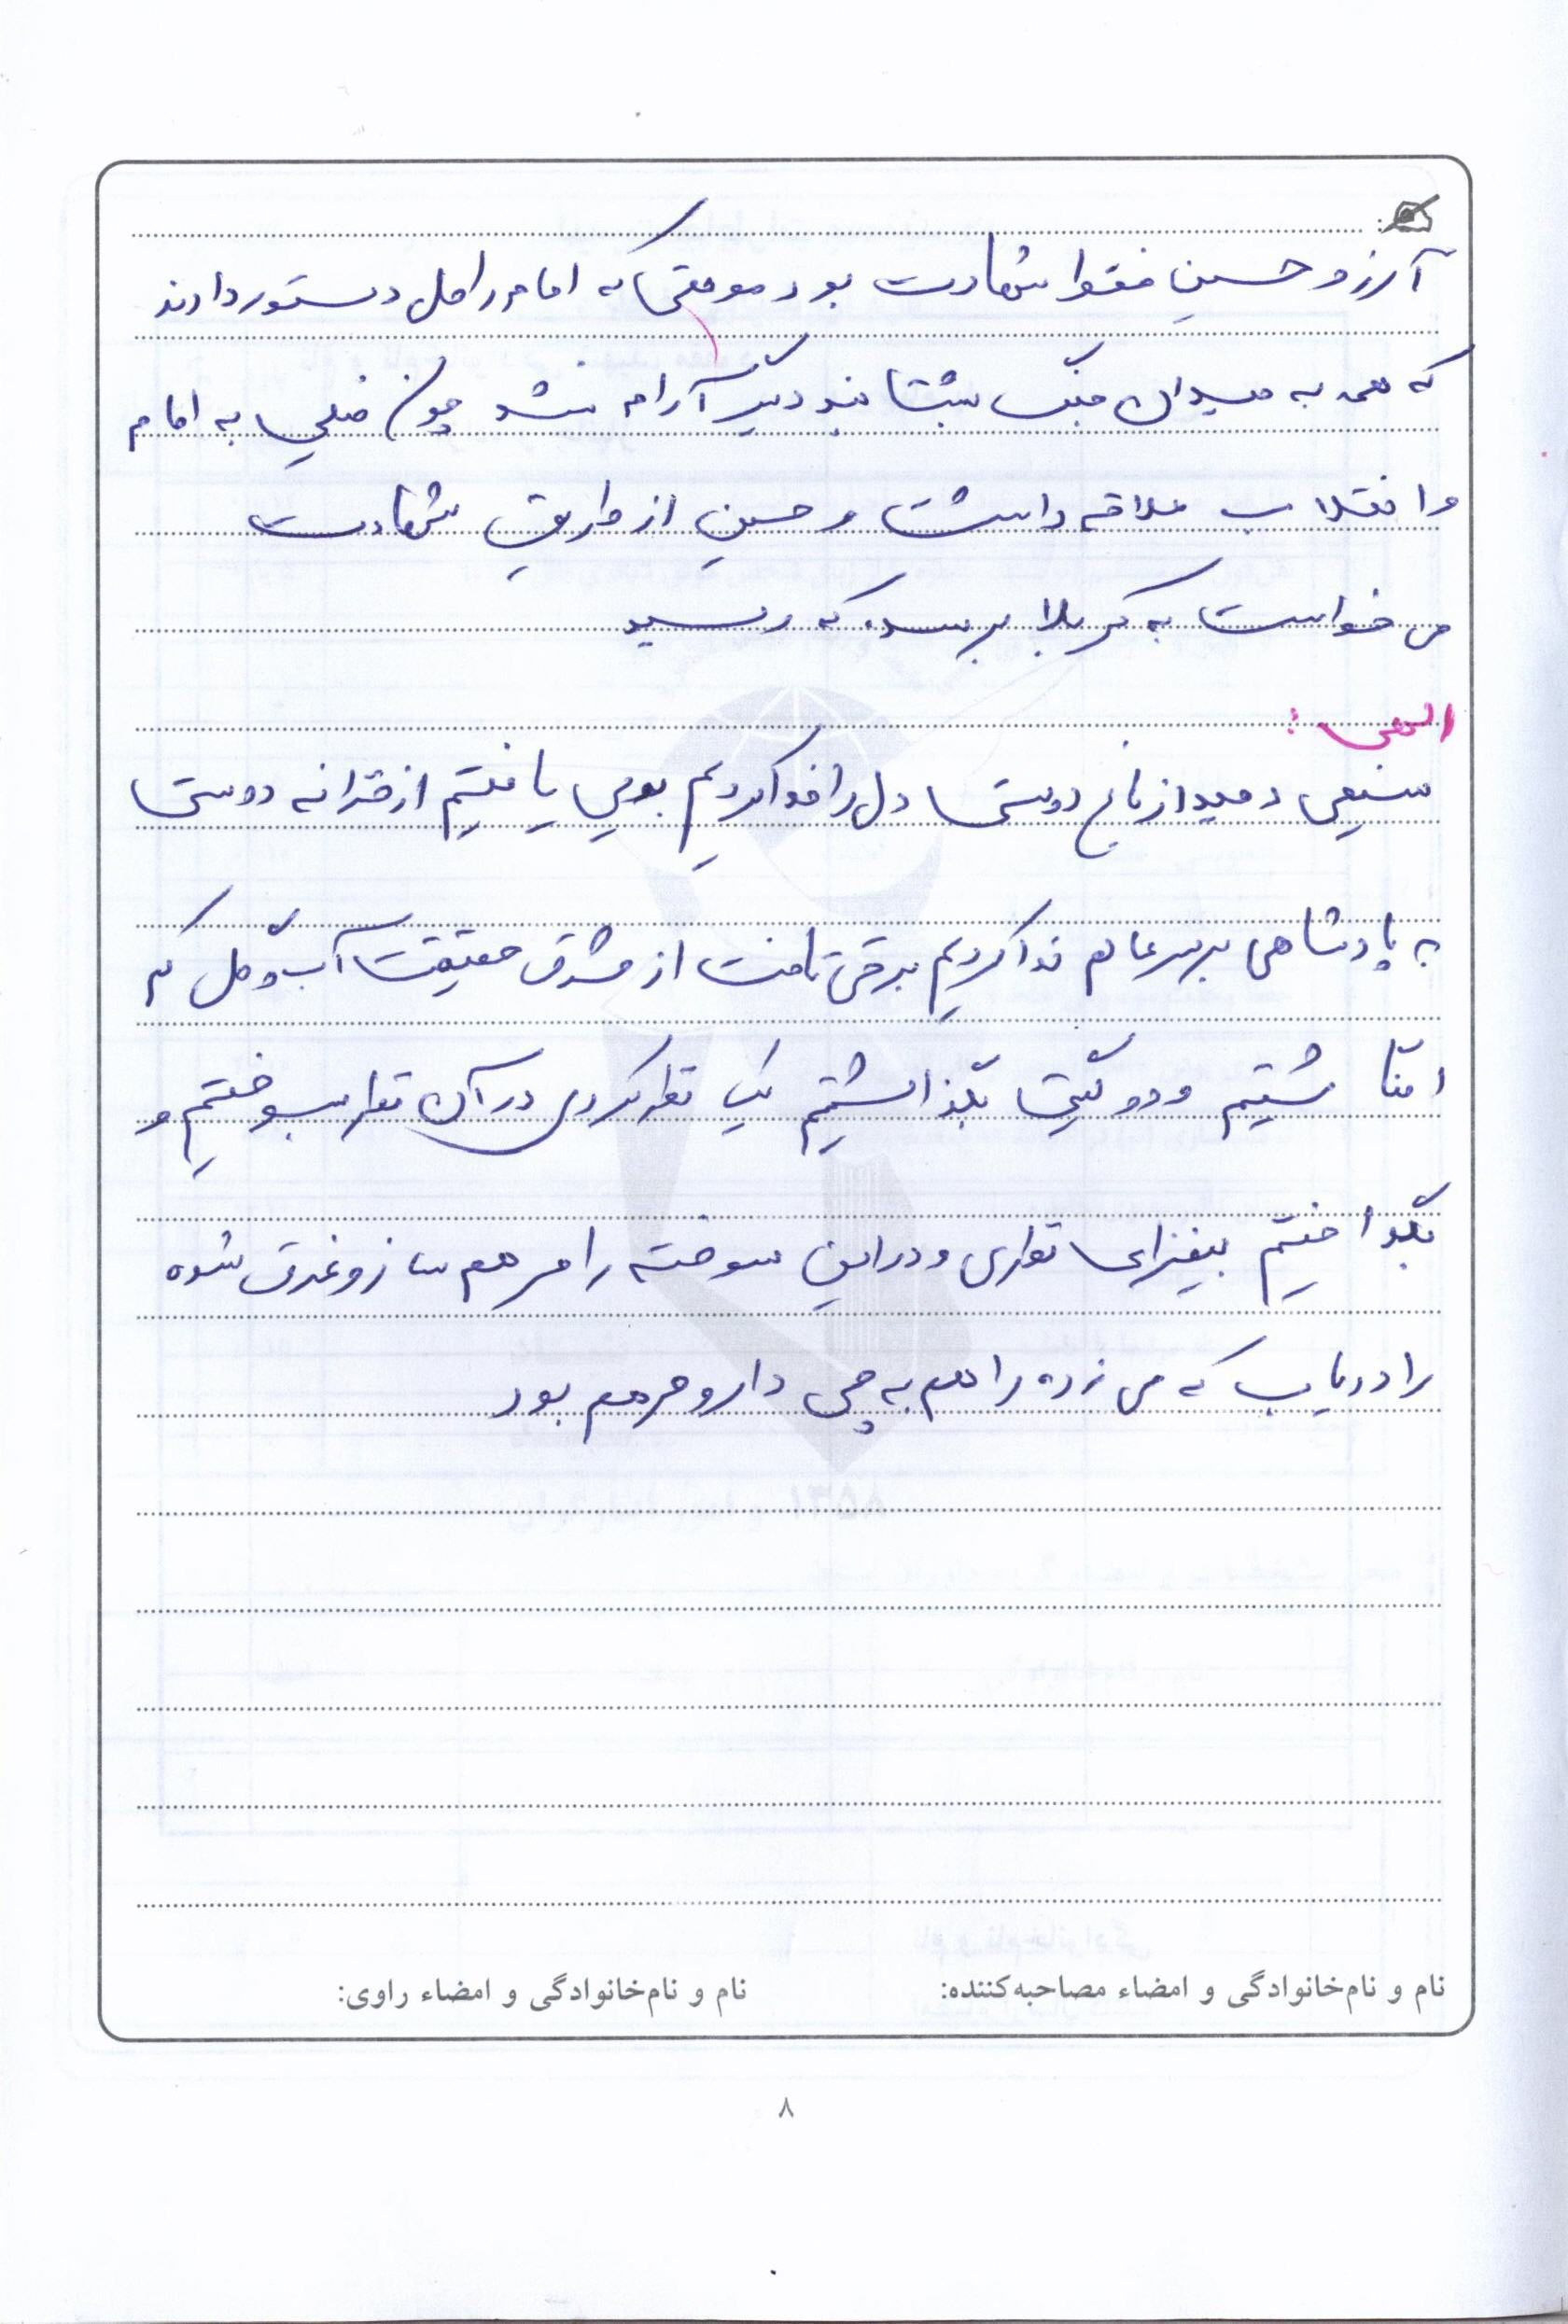 آرزو حسین فقط شهادت بود موقعی که امام راحل دستور دادند
که همه به میدان جنگ بشتابند دیگر آرام نشد چون خیلی به امام
و انقلاب علاقه داشت و حسین از طریق شهادت
می خواست به کربلا برسد که رسید
الهی:
نسیمی دمید از باغ دوستی دل را فدا کردیم بویی یافتیم از خزانه دوستی
به پادشاهی بر سر عالم ندا کردیم برقی تافت از مشرق حقیقت آب و گل کم
انگاشتیم و دو گیتی بگذاشتیم یک نظر کردی در آن نظر بسوختیم و
بگداختیم بیفزای نظری و در این سوخته را مرهم ساز و غرق شده
را دریاب که می زده را هم به می دارو و مرهم بود
نام و نام‌خانوادگی و امضاء مصاحبه‌کننده:
نام و نام‌خانوادگی و امضاء راوی:
۸